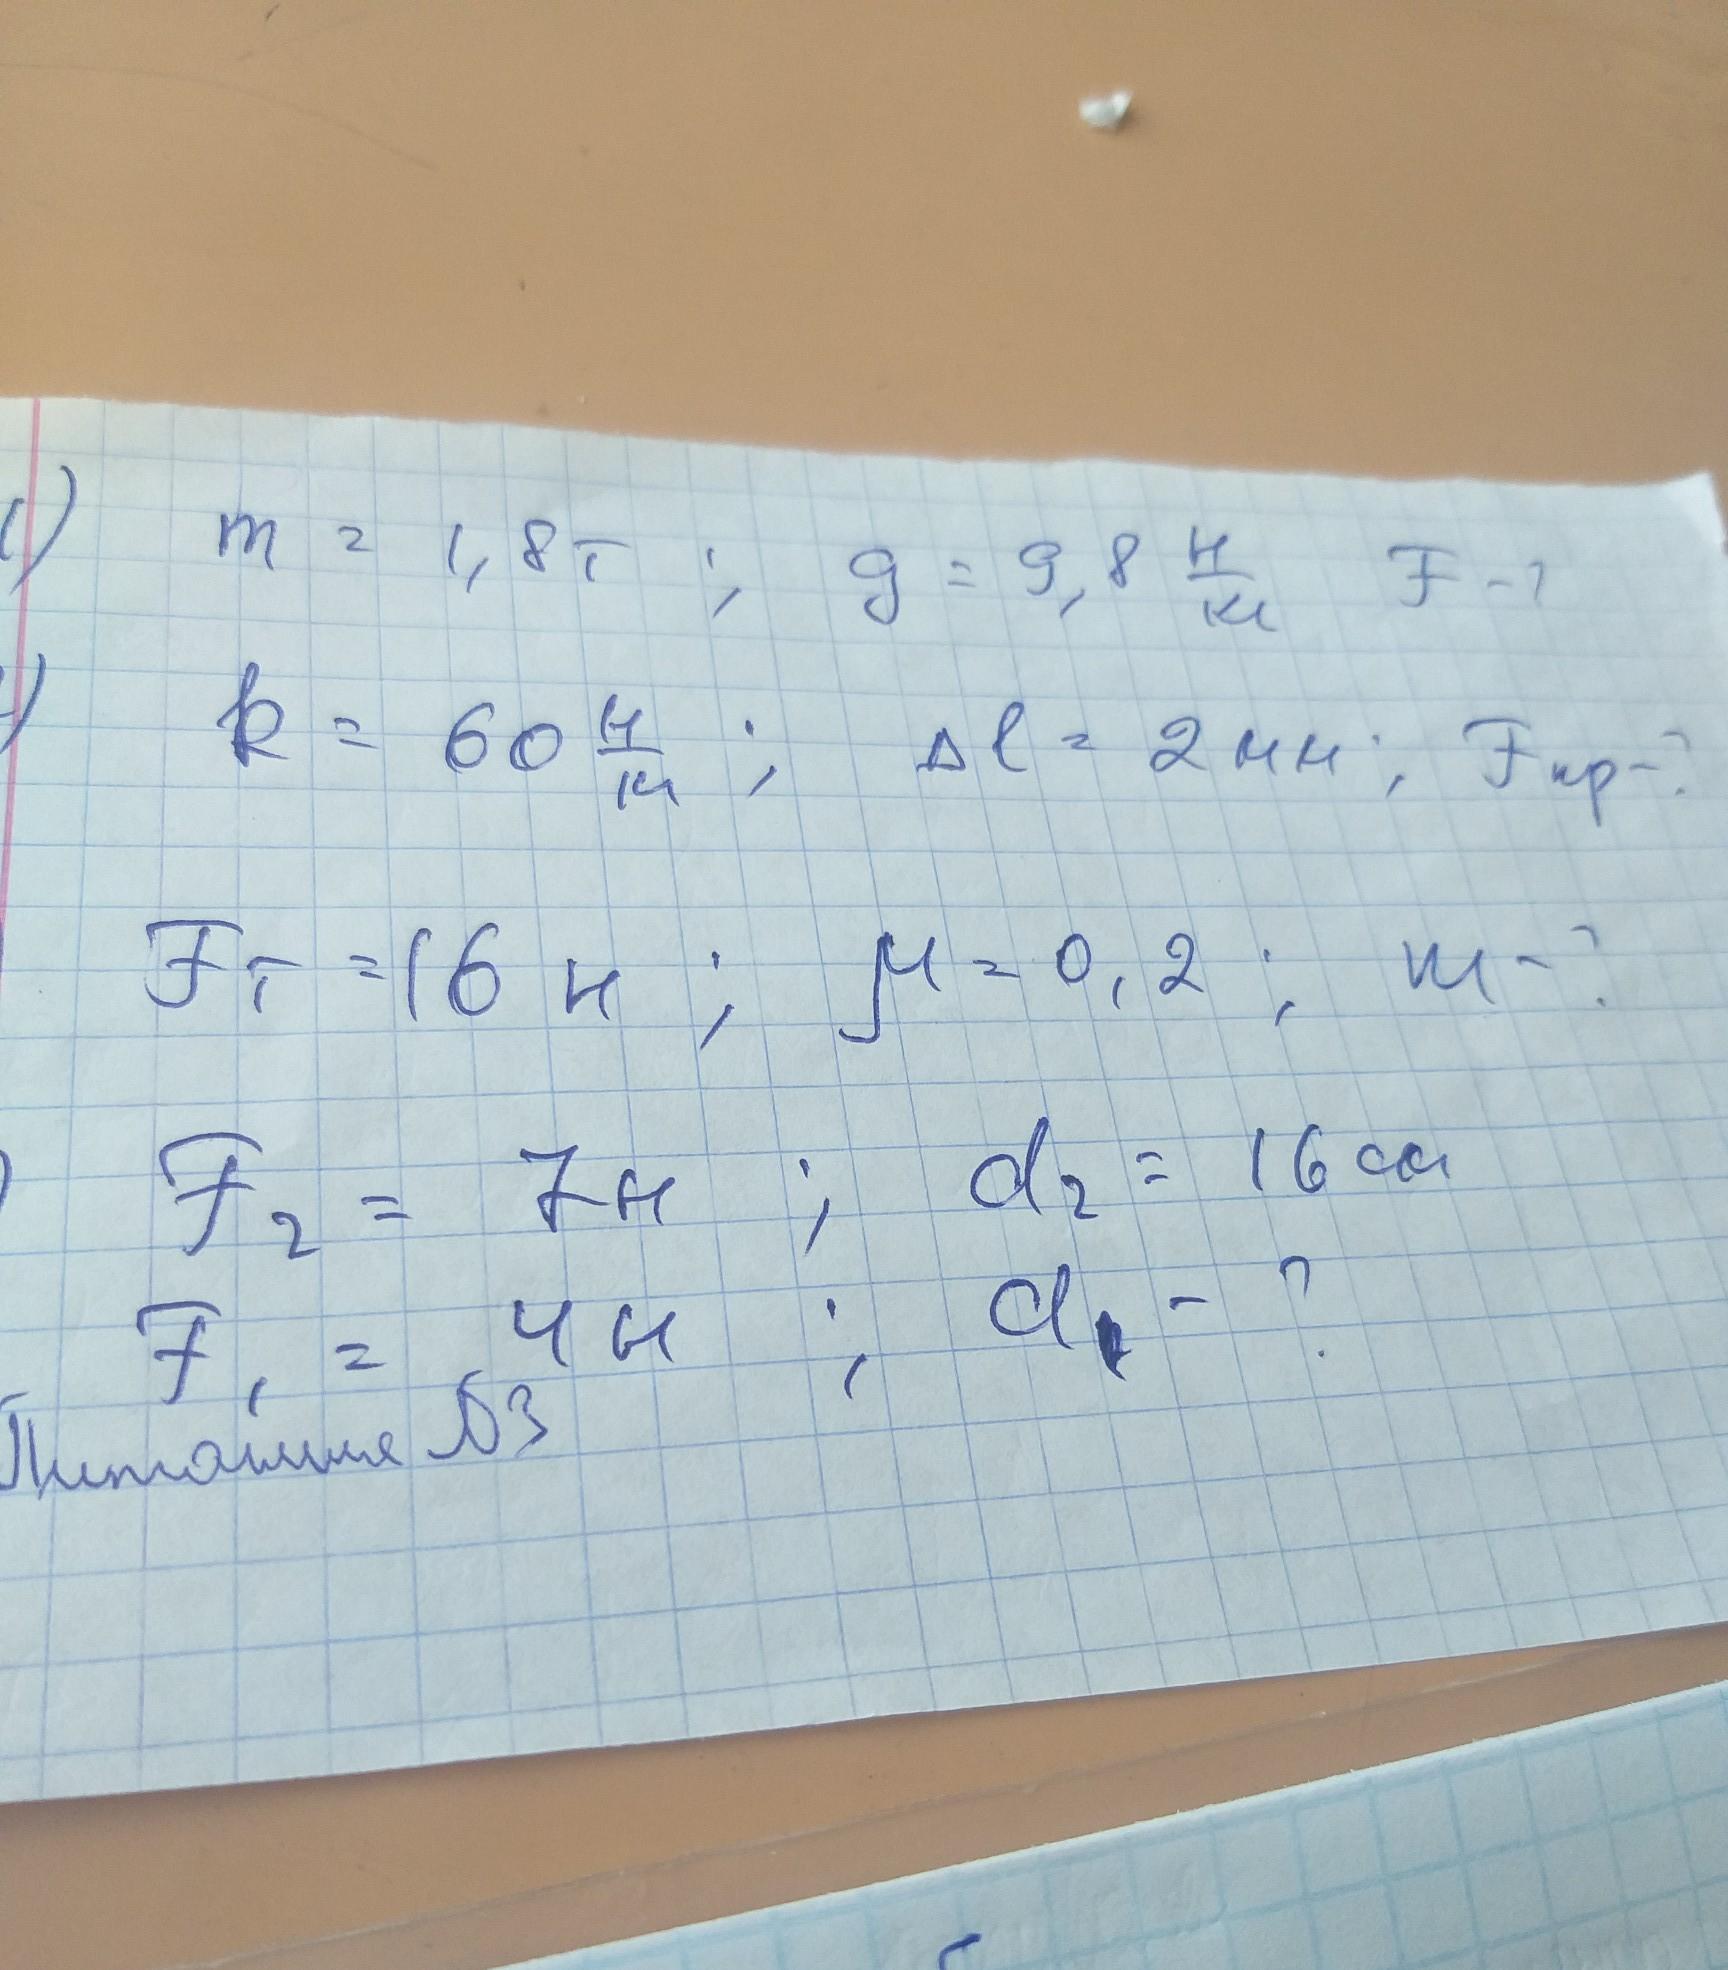 1) m = 1,8т ; g = 9,8 Н/кг F - ?
k = 60 Н/м ; Δl = 2мм ; Fпр - ?
Fт = 16 н ; μ = 0,2 ; m - ?
) F₂ = 7н ; d₂ = 16 см
F₁ = 4н ; d₁ - ?
Питання №3